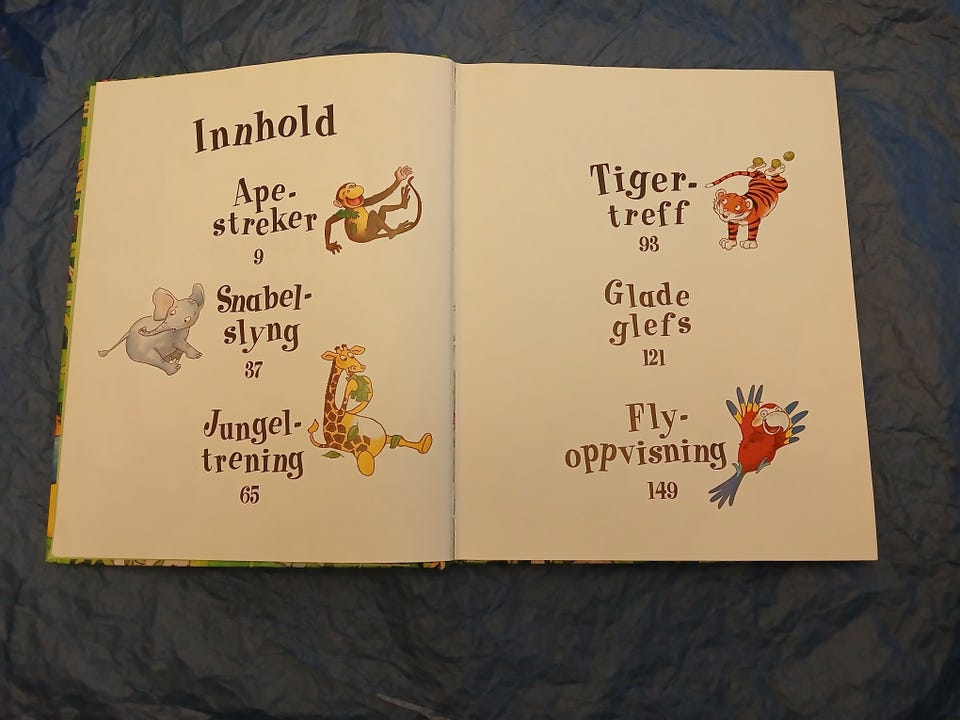 Innhold
Ape-
streker
9
Snabel-
slyng
37
Jungel-
trening
65
Tiger-
treff
93
Glade
glefs
121
Fly-
oppvisning
149